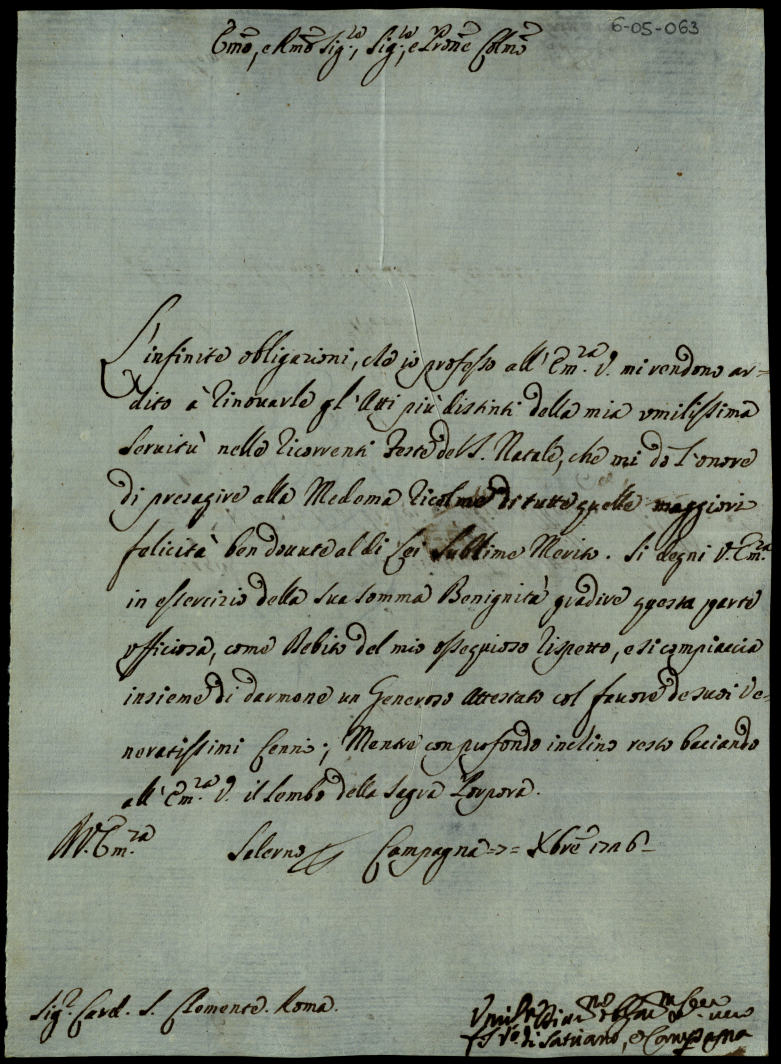 6-05-063
Emõ, e Rmõ Sig.re, Sig.re, e Prone Colmõ
L'infinite obligazioni, che io professo all' Em.za V. mi rendono ar=
dito à rinouarle gl' Atti più distinti della mia vmilissima
Seruitù nelle ricorrenti Feste del S. Natale, che mi dà l'onore
di presagire alla Medema ricolme di tutte quelle maggiori
felicità ben douute al di Lei Sublime Merito. Si degni V. Em.za
in essercizio della sua somma Benignità gradire questa parte
vfficiosa, come Debito del mio ossequioso rispetto, e si compiaccia
insieme di darmene un Generoso Attestato col fauore de suoi Ve=
neratissimi Cenni; Mentre con profondo inclino resto baciando
all' Em.za V. il lembo della Sagra Porpora.
Di V. Em.za
Salerno Campagna = 7 = Xbre 1726
Sig.r Card. S. Clemente. Roma.
Vmil.mo Diu.mo et Oblig.mo Ser.re vero
V.o di Satriano, e Campagna